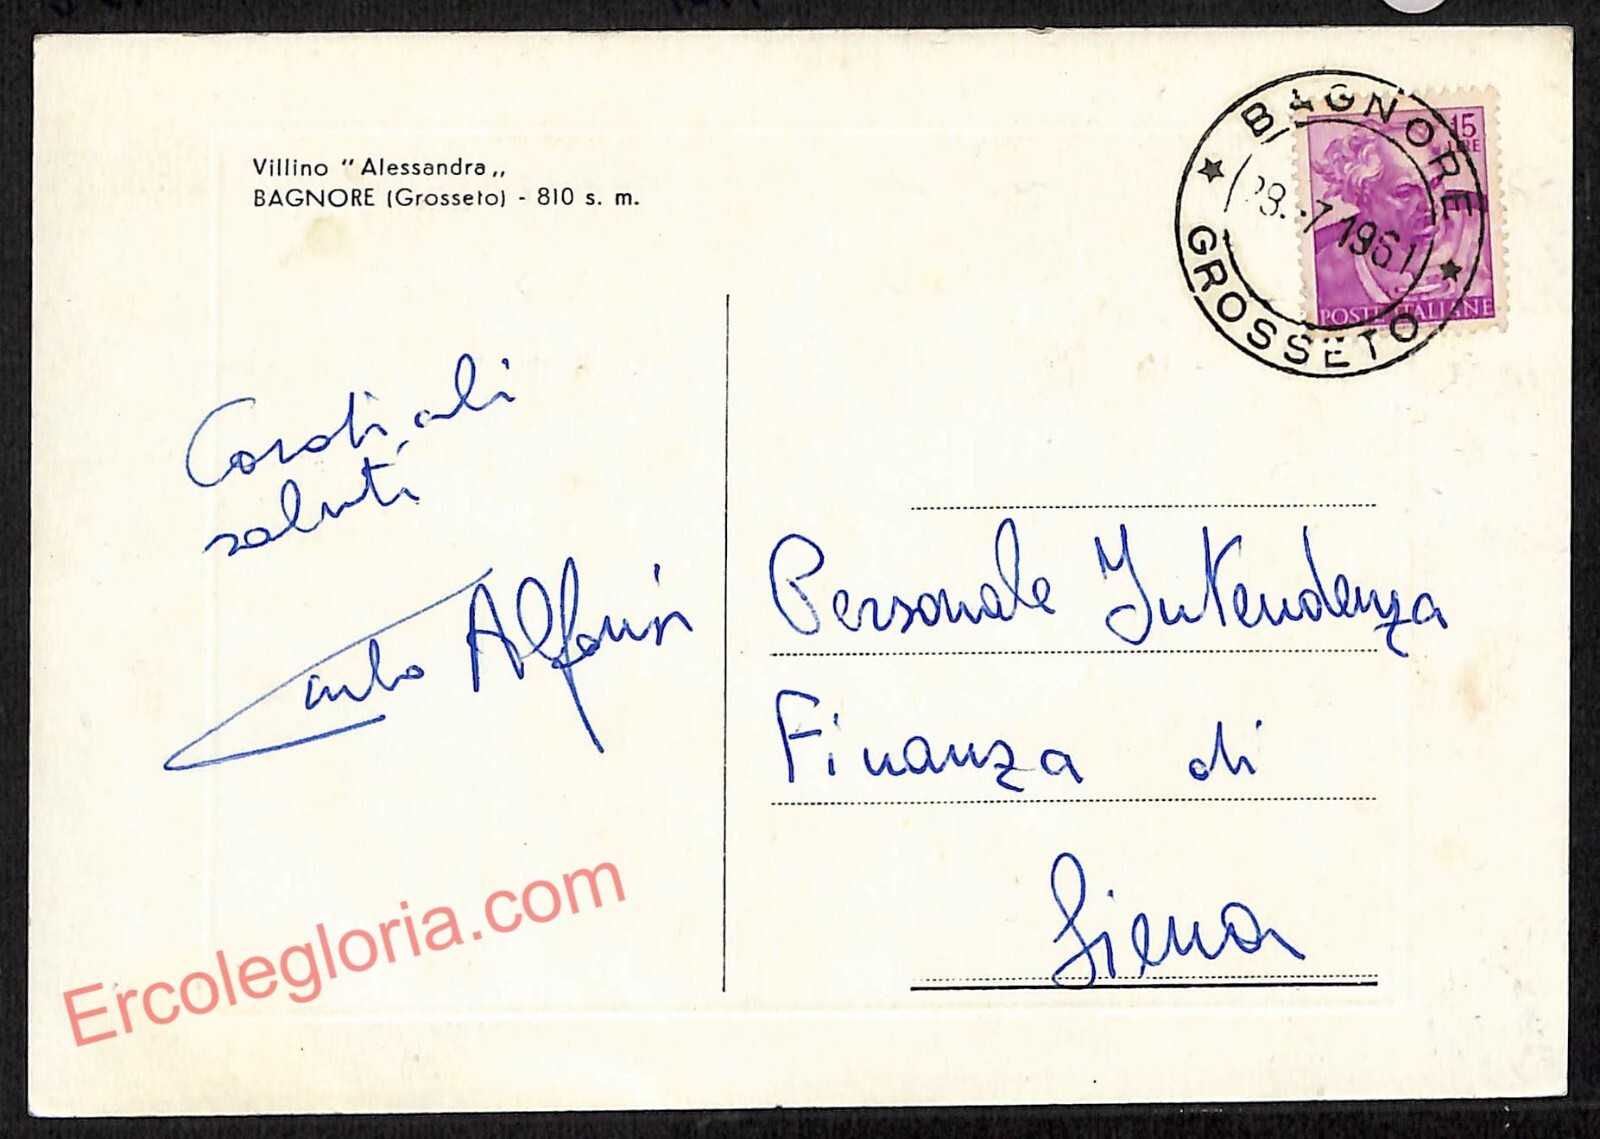 Villino “Alessandra„
BAGNORE (Grosseto) - 810 s. m.
BAGNORE
GROSSETO
28.-7 1961
15
LIRE
POSTE ITALIANE
Cordiali
saluti
Carlo Alfonsi
Personale Intendenza
Finanza di
Siena
Ercolegloria.com